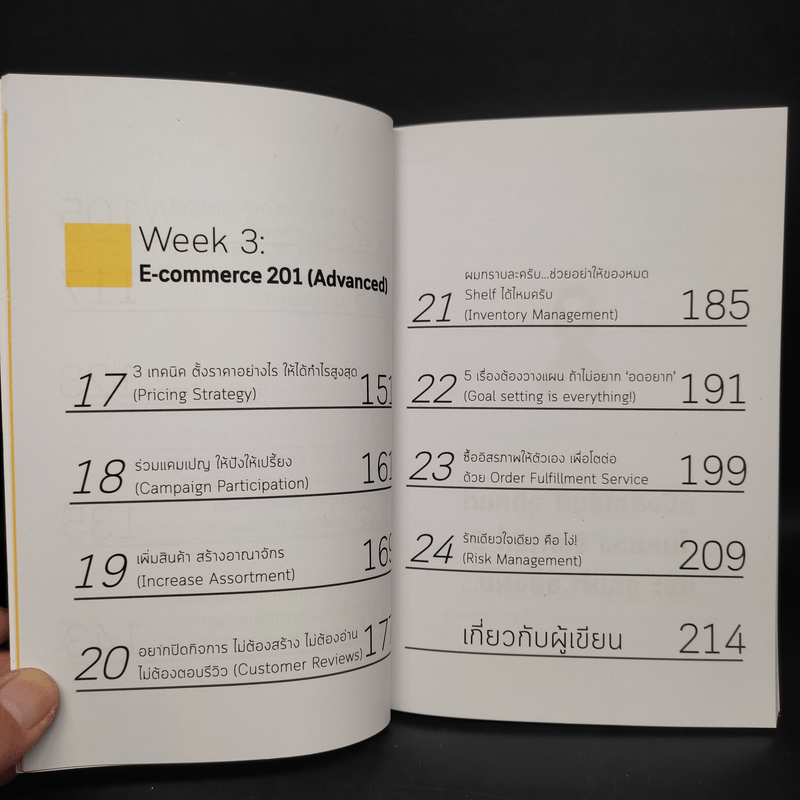 Week 3:
E-commerce 201 (Advanced)
17 3 เทคนิค ตั้งราคาอย่างไร ให้ได้กำไรสูงสุด
(Pricing Strategy) 151
18 ร่วมแคมเปญ ให้ปังให้เปรี้ยง
(Campaign Participation) 161
19 เพิ่มสินค้า สร้างอาณาจักร
(Increase Assortment) 169
20 อยากปิดกิจการ ไม่ต้องสร้าง ไม่ต้องอ่าน
ไม่ต้องตอบรีวิว (Customer Reviews) 177
21 ผมทราบละครับ...ช่วยอย่าให้ของหมด
Shelf ได้ไหมครับ
(Inventory Management) 185
22 5 เรื่องต้องวางแผน ถ้าไม่อยาก ‘อดอยาก’
(Goal setting is everything!) 191
23 ซื้ออิสรภาพให้ตัวเอง เพื่อโตต่อ
ด้วย Order Fulfillment Service 199
24 รักเดียวใจเดียว คือ โง่!
(Risk Management) 209
เกี่ยวกับผู้เขียน 214